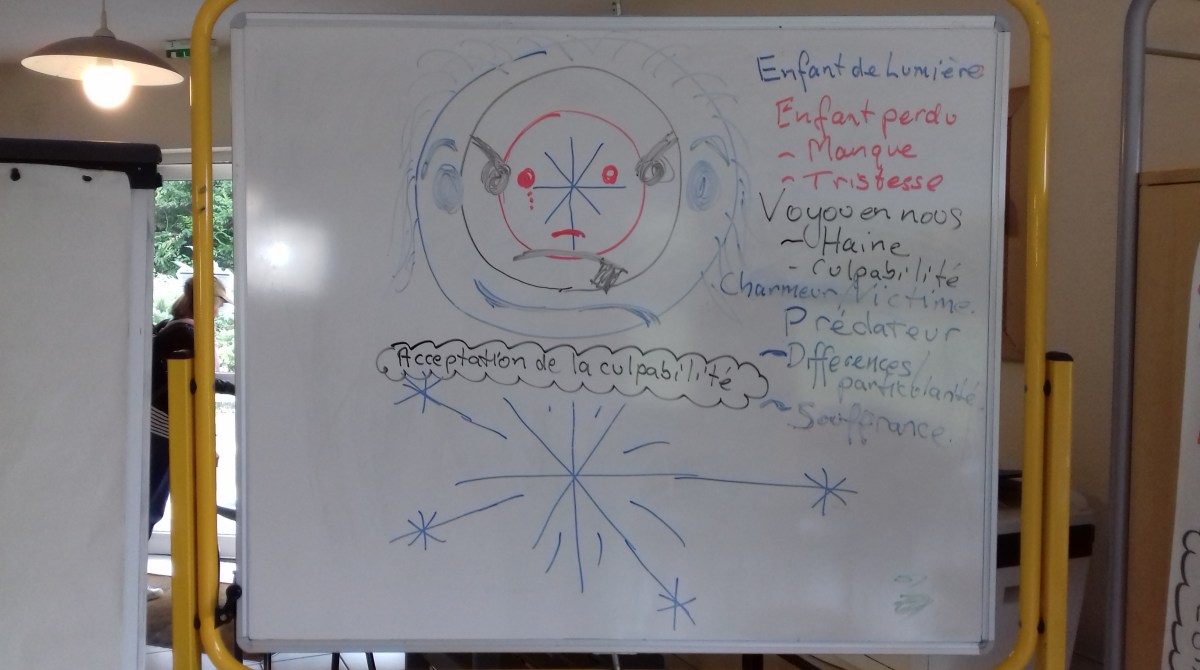 Enfant de Lumière
Enfant perdu
~ Manque
~ Tristesse
Voyou en nous
~ Haine
- Culpabilité
Charmeur/Victime.
Prédateur
~ Différences/
particularité.
~ Souffrance.
Acceptation de la culpabilité